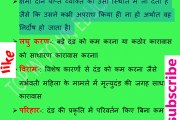 क्षमा दान प्राप्त व्यक्ति को उसी स्थिति में ला देता है
जैसे कि उसने कभी अपराध किया ही ना हो अर्थात वह
निर्दोष हो जाता है।
लघु करण- बड़े दंड को कम करना या कठोर कारावास
को साधारण कारावास करना
विराम- विशेष कारणों से दंड को कम करना जैसे
गर्भवती महिला के मामले में मृत्युदंड की जगह साधा
कारावास
परिहार- दंड की प्रकृति में परिवर्तन किए बिना कम
like
Subscribe